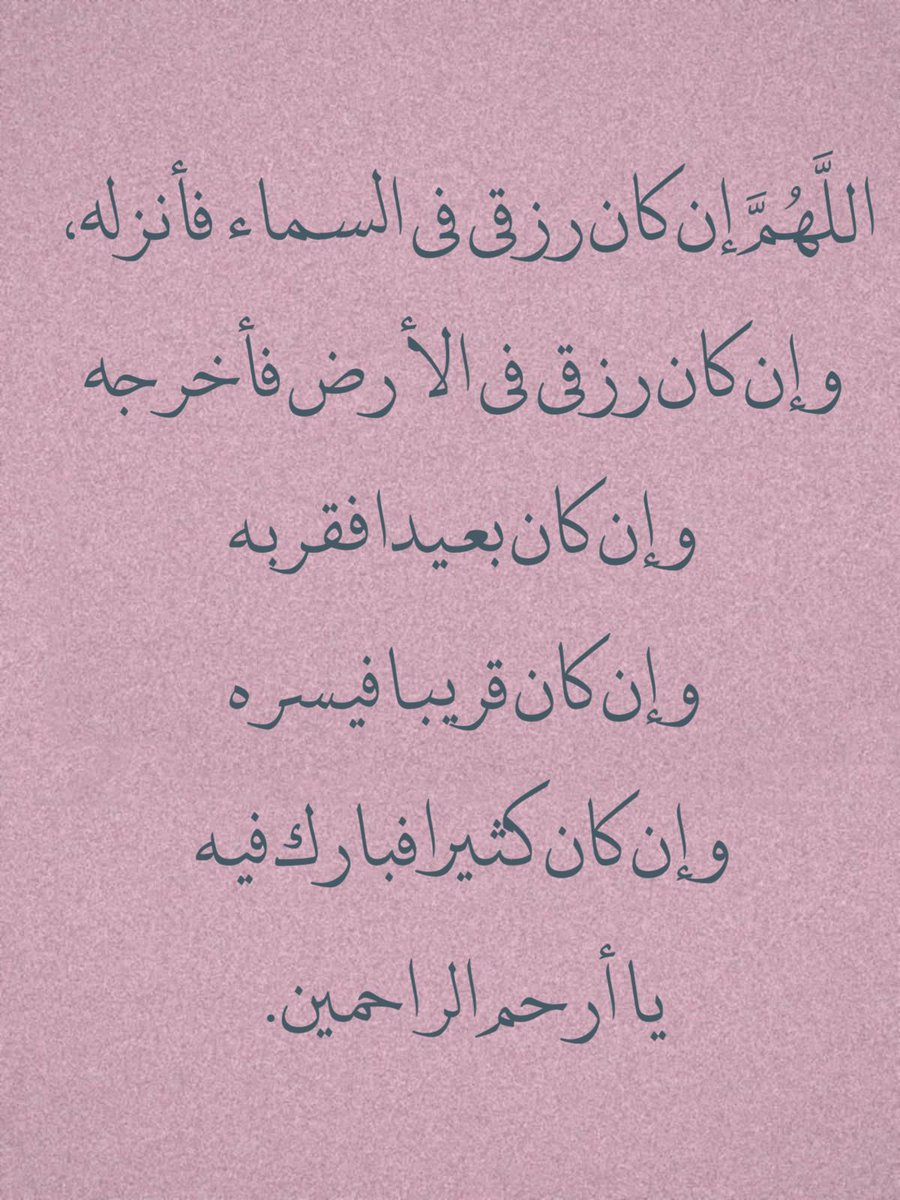 اللَّهُمَّ إن كان رزقى فى السماء فأنزله،
وإن كان رزقى فى الأرض فأخرجه
وإن كان بعيدا فقربه
وإن كان قريبا فيسره
وإن كان كثيرا فبارك فيه
يا أرحم الراحمين.